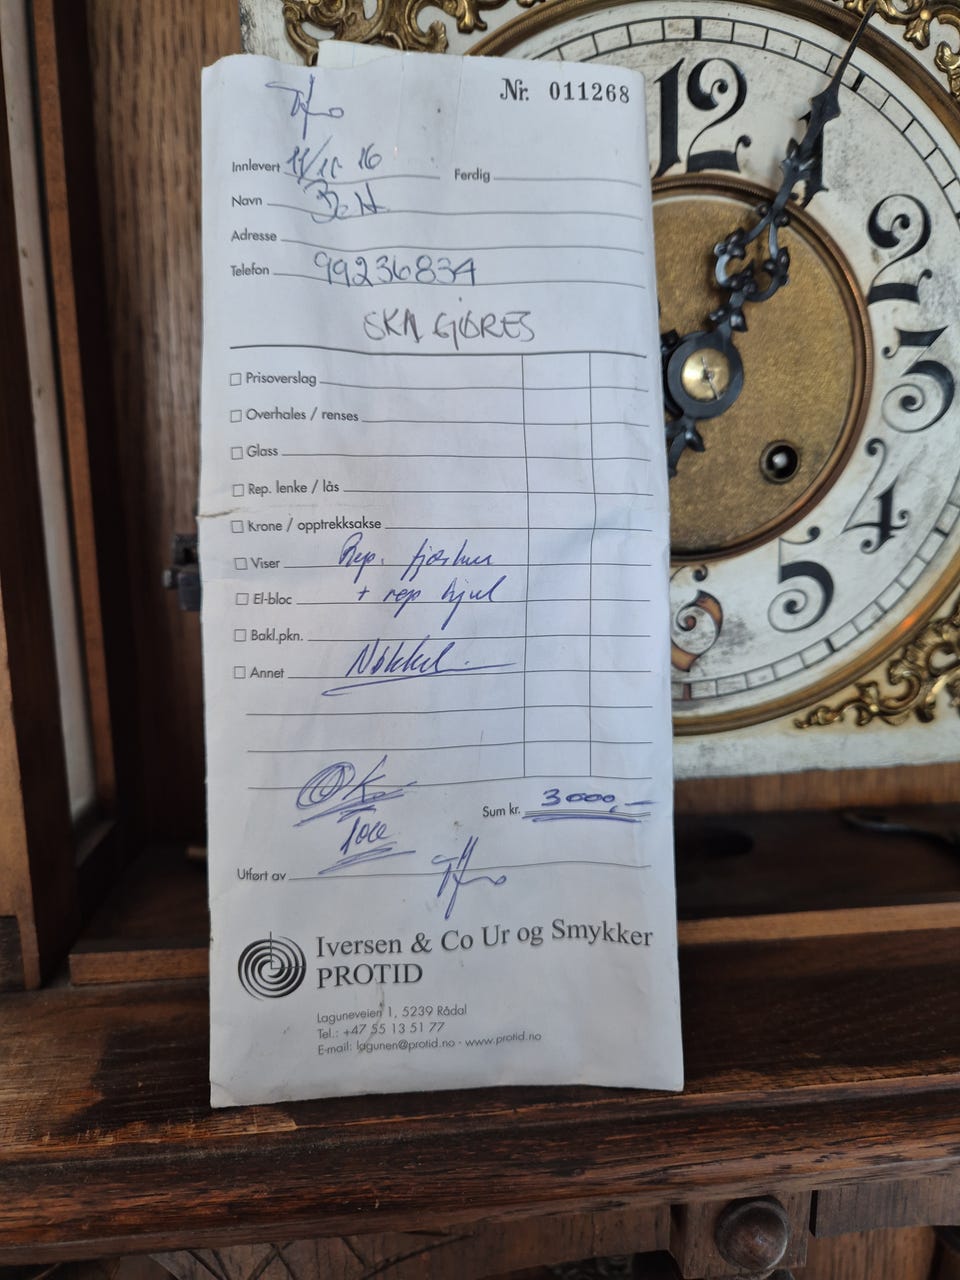 Nr. 011268
Innlevert 11/11 16 Ferdig
Navn
Adresse
Telefon 99236834
SKAL GJØRES
Prisoverslag
Overhales / renses
Glass
Rep. lenke / lås
Krone / opptrekksakse
Viser Rep. fjærhus
El-bloc + rep hjul
Bakl.pkn.
Annet Nøkkel
OK
Sum kr. 3000,-
Utført av
Iversen & Co Ur og Smykker
PROTID
Laguneveien 1, 5239 Rådal
Tel.: +47 55 13 51 77
E-mail: lagunen@protid.no - www.protid.no
12
1
2
3
4
5
6